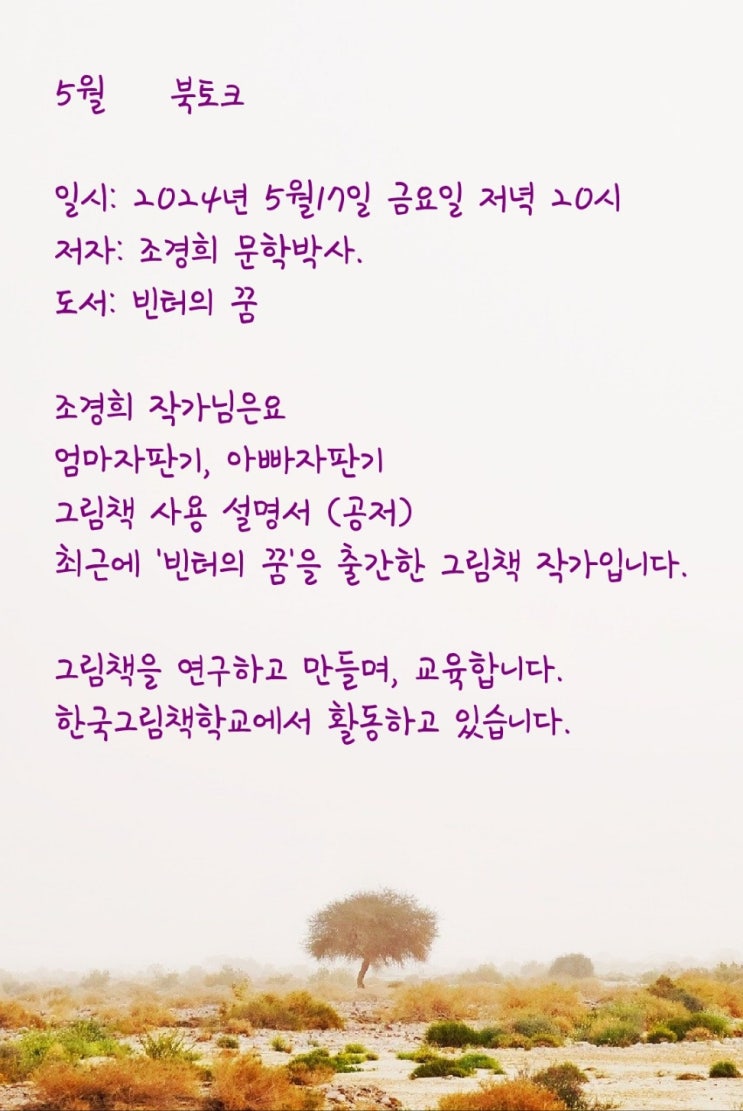 5월 북토크
일시: 2024년 5월17일 금요일 저녁 20시
저자: 조경희 문학박사.
도서: 빈터의 꿈
조경희 작가님은요
엄마자판기, 아빠자판기
그림책 사용 설명서 (공저)
최근에 '빈터의 꿈'을 출간한 그림책 작가입니다.
그림책을 연구하고 만들며, 교육합니다.
한국그림책학교에서 활동하고 있습니다.